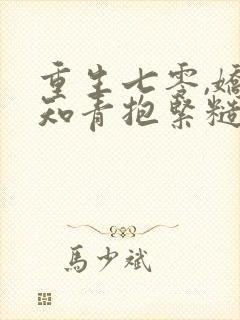 重生七零,嬌
知青抱緊糙
馬少斌